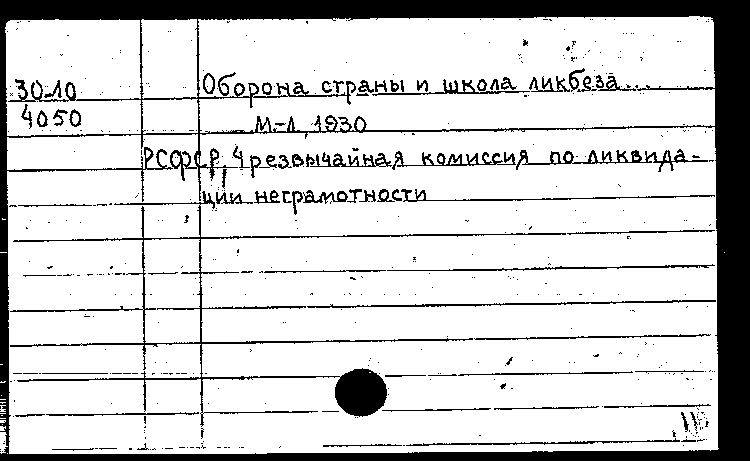 30-10 Оборона страны и школа ликбеза...
4050 М.-Л, 1930
РСФСР, Чрезвычайная комиссия по ликвида-
ции неграмотности